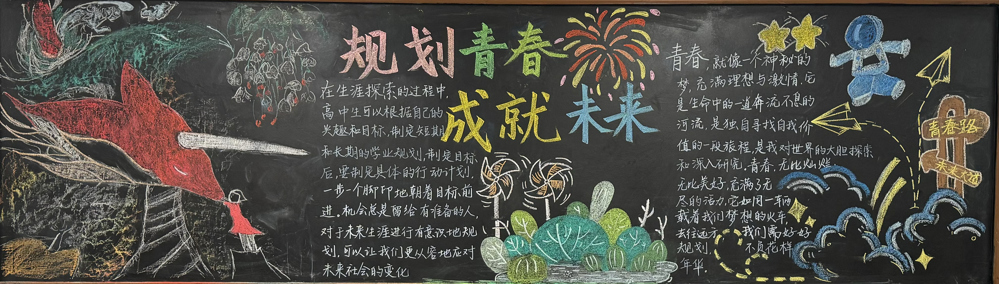 规划青春
成就未来
在生涯探索的过程中,
高中生可以根据自己的
兴趣和目标,制定短期
和长期的学业规划,制定目标
后,要制定具体的行动计划,
一步一个脚印地朝着目标前
进。机会总是留给有准备的人,
对于未来生涯进行有意识地规
划,可以让我们更从容地应对
未来社会的变化
青春,就像一个神秘的
梦,充满理想与激情,它
是生命中的一道奔流不息的
河流,是独自寻找自我价
值的一段旅程,是我对世界的大胆探索
和深入研究。青春,无比灿烂
无比美好,充满了无
尽的活力,它如同一车
载着我们梦想的火车,
去往远方 我们需好好
规划, 不负花样
年华。
青春路
未来